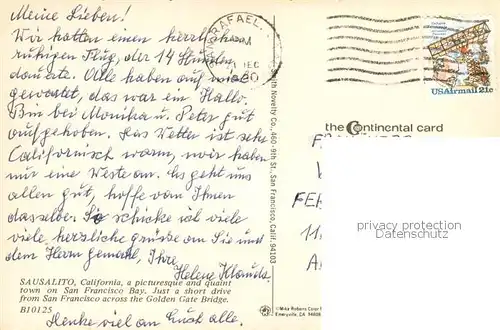 Meine Lieben!
Wir hatten einen herrlichen
ruhigen Flug, der 14 Stunden
dauerte. Alle haben auf mich
gewartet, das war ein Hallo.
Bin bei Monika u. Peter gut
aufgehoben. Das Wetter ist sehr
Californisch warm, wir haben
nur eine Weste an. Es geht uns
allen gut, hoffe von Ihnen
dasselbe. So schicke ich viele
viele herzliche Grüsse an Sie und
dem Herrn Gemahl, Ihre
Helene
SAUSALITO, California, a picturesque and quaint
town on San Francisco Bay. Just a short drive
from San Francisco across the Golden Gate Bridge.
B10125
Denke viel an Euch alle.
SAN RAFAEL,
DEC
80
Novelty Co., 460-9th St., San Francisco, Calif. 94103
USAirmail 21c
the Continental card
privacy protection
©Mike Roberts Color
Emeryville, CA 94608